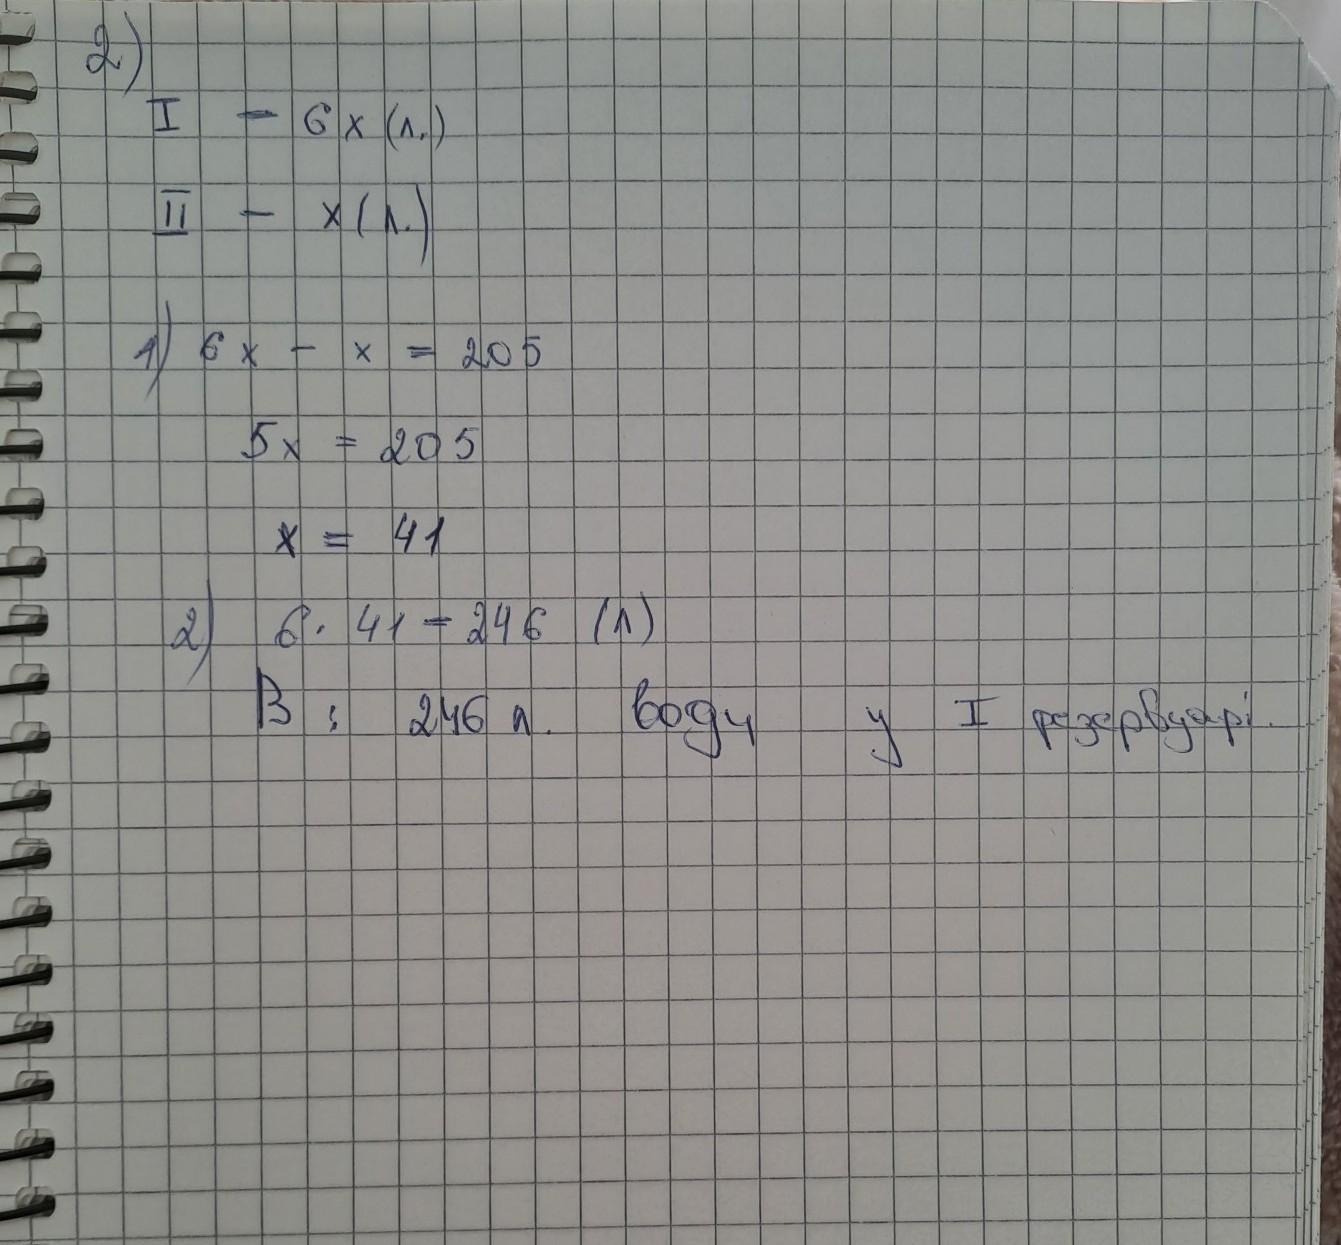 2)
I - 6x (л.)
II - x (л.)
1) 6x - x = 205
5x = 205
x = 41
2) 6 · 41 = 246 (л)
В: 246 л. води у I резервуарі.